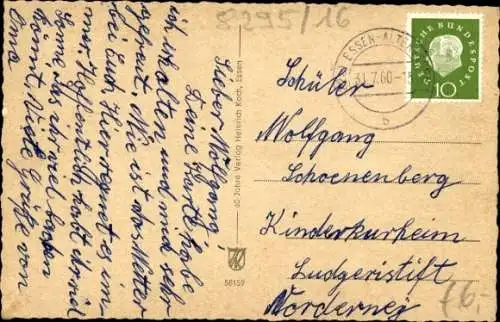 8295/16
Lieber Wolfgang,
Deine Karte habe
ich erhalten und mich sehr
gefreut. Wie ist das Wetter
bei Euch. Hier regnet es im-
mer. Hoffentlich habt Ihr viel
Sonne, das ihr viel baden
könnt. Viele Grüße von
Oma
60 Jahre Verlag Heinrich Koch, Essen
56159
ESSEN-ALTEN
31.7.60
b
DEUTSCHE BUNDESPOST
10
Schüler
Wolfgang
Schoenenberg
Kinderkurheim
Ludgeristift
Norderney
76-